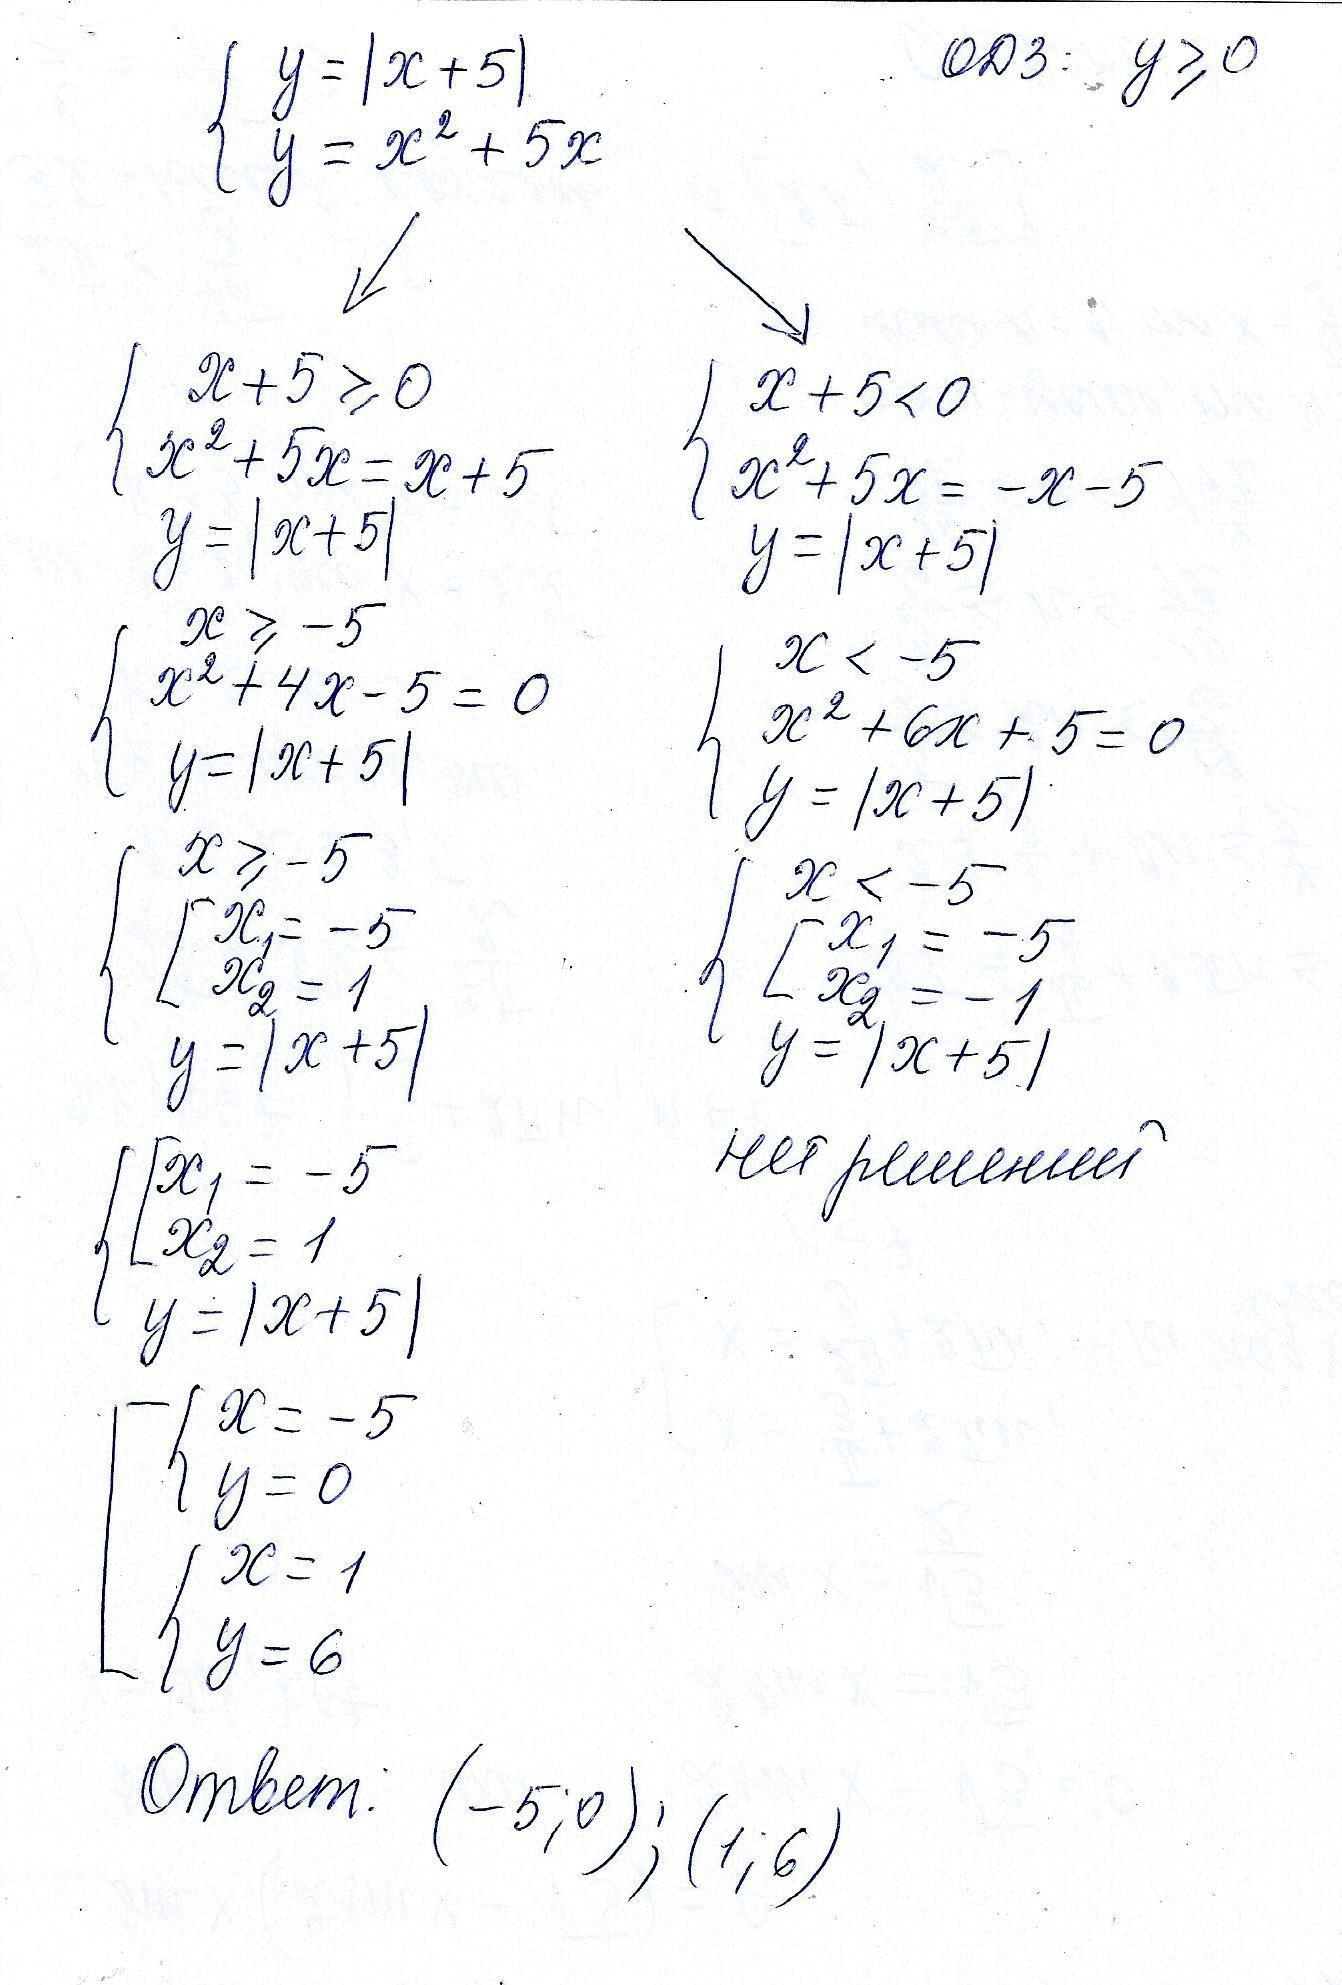 y = |x + 5|
y = x² + 5x
ОДЗ: y ⩾ 0
x + 5 ⩾ 0
x² + 5x = x + 5
y = |x + 5|
x ⩾ -5
x² + 4x - 5 = 0
y = |x + 5|
x ⩾ -5
x₁ = -5
x₂ = 1
y = |x + 5|
x₁ = -5
x₂ = 1
y = |x + 5|
x = -5
y = 0
x = 1
y = 6
x + 5 < 0
x² + 5x = -x - 5
y = |x + 5|
x < -5
x² + 6x + 5 = 0
y = |x + 5|
x < -5
x₁ = -5
x₂ = -1
y = |x + 5|
нет решений
Ответ: (-5; 0); (1; 6)